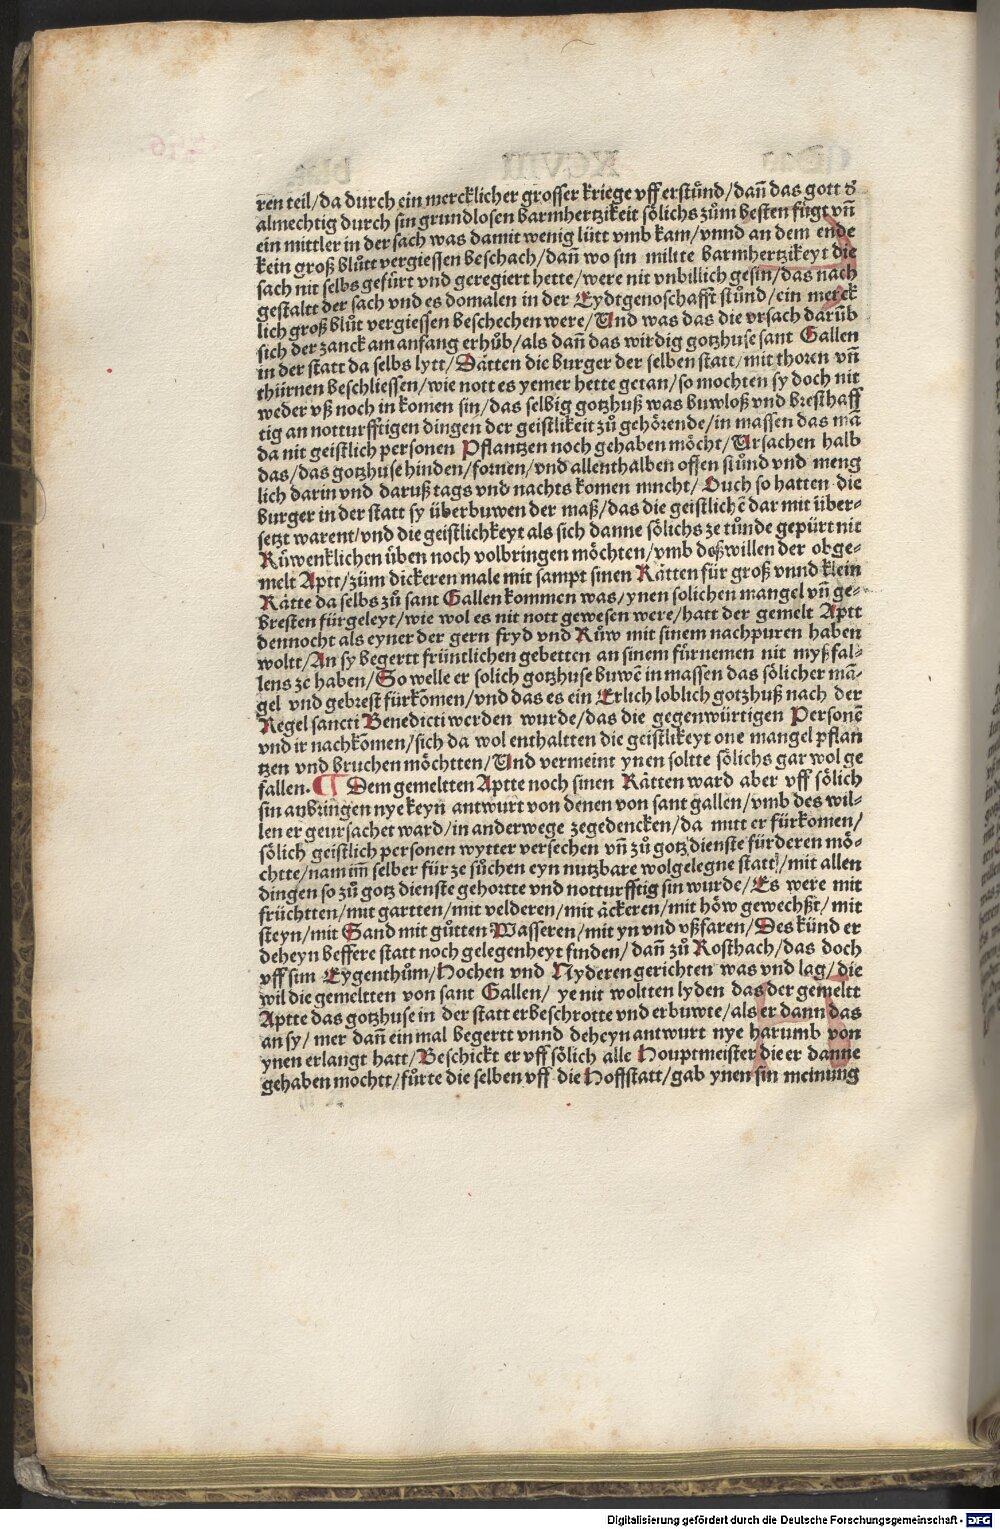 ren teil/da durch ein mercklicher grosser kriege vff erstůnd/dañ das gott d̕
almechtig durch sin grundlosen barmhertzikeit sölichs zům besten fůgt vñ
ein mittler in der sach was damit wenig lütt vmb kam/vnnd an dem ende
kein groß blůtt vergiessen beschach/dañ wo sin miltte barmhertzikeyt die
sach nit selbs gefürt vnd geregiert hette/were nit vnbillich gesin/das nach
gestaltt der sach vnd es domalen in der Eydtgenoschafft stůnd/ein merck
lich groß blůt vergiessen beschechen were/Vnd was das die vrsach darůb
sich der zanck am anfang erhůb/als dañ das wirdig gotzhuse sant Gallen
in der statt da selbs lytt/Dätten die burger der selben statt/mit thoren vñ
thürnen beschliessen/wie nott es yemer hette getan/so mochten sy doch nit
weder vß noch in komen sin/das selbig gotzhuß was buwloß vnd bresthaff
tig an notturfftigen dingen der geistlikeit zů gehörende/in massen das mā
da nit geistlich personen Pflantzen noch gehaben möcht/Vrsachen halb
das/das gotzhuse hinden/fornen/vnd allenthalben offen stůnd vnd meng
lich darin vnd daruß tags vnd nachts komen mncht/Ouch so hatten die
burger in der statt sy überbuwen der maß/das die geistlichē dar mit über-
setzt warent/vnd die geistlichkeyt als sich danne sölichs ze tůnde gepürt nit
Růwenklichen üben noch volbringen möchten/vmb deßwillen der obge-
melt Aptt/züm dickeren male mit sampt sinen Rätten für groß vnnd klein
Rätte da selbs zů sant Gallen kommen was/ynen solichen mangel vñ ge-
bresten fürgeleyt/wie wol es nit nott gewesen were/hatt der gemelt Aptt
dennocht als eyner der gern fryd vnd Růw mit sinem nachpuren haben
woltt/An sy begertt früntlichen gebetten an sinem fürnemen nit myßfal-
lens ze haben/So welle er solich gotzhuse buwē in massen das sölicher mā-
gel vnd gebrest fürkōmen/vnd das es ein Erlich loblich gotzhuß nach der
Regel sancti Benedicti werden wurde/das die gegenwürtigen Personē
vnd ir nachkōmen/sich da wol enthaltten die geistlikeyt one mangel pflan
tzen vnd bruchen möchtten/Vnd vermeint ynen soltte sölichs gar wol ge
fallen. ¶ Dem gemeltten Aptte noch sinen Rätten ward aber vff sölich
sin anbringen nye keyn antwurt von denen von sant gallen/vmb des wil-
len er geursachet ward/in anderwege zegedencken/da mitt er fürkomen/
sölich geistlich personen wytter versechen vñ zů gotzdienste fürderen mö-
chtte/nam im̄ selber für ze sůchen eyn nutzbare wolgelegne statt/mit allen
dingen so zů gotz dienste gehortte vnd notturfftig sin wurde/Es were mit
früchtten/mit gartten/mit velderen/mit äckeren/mit höw gewechßt/mit
steyn/mit Sand mit gůtten Wasseren/mit yn vnd vßfaren/Des künd er
deheyn bessere statt noch gelegenheyt finden/dañ zů Rosthach/das doch
vff sim Eygenthům/Hochen vnd Nyderen gerichten was vnd lag/die
wil die gemeltten von sant Gallen/ ye nit woltten lyden das der gemeltt
Aptte das gotzhuse in der statt erbeschrotte vnd erbuwte/als er dann das
an sy/mer dañ ein mal begertt vnnd deheyn antwurt nye harumb von
ynen erlangt hatt/Beschickt er vff sölich alle Houptmeister die er danne
gehaben mochtt/fůrte die selben vff die Hoffstatt/gab ynen sin meinung
Digitalisierung gefördert durch die Deutsche Forschungsgemeinschaft - DFG